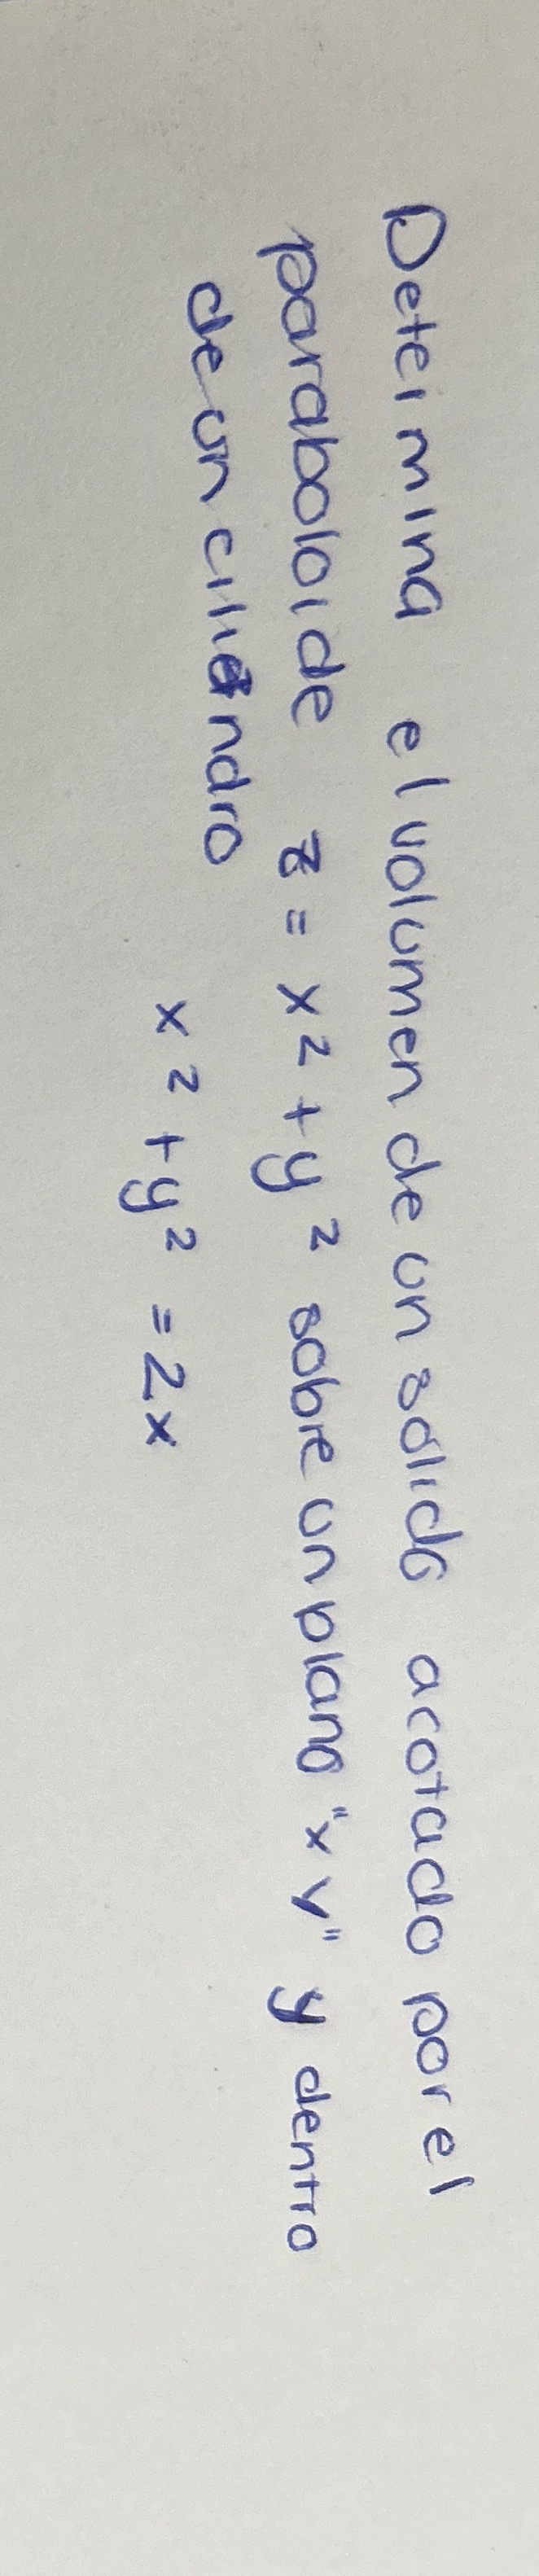 Determina el volumen de un sólido acotado por el
paraboloide z = x² + y² sobre un plano "xy" y dentro
de un cilindro
x² + y² = 2x